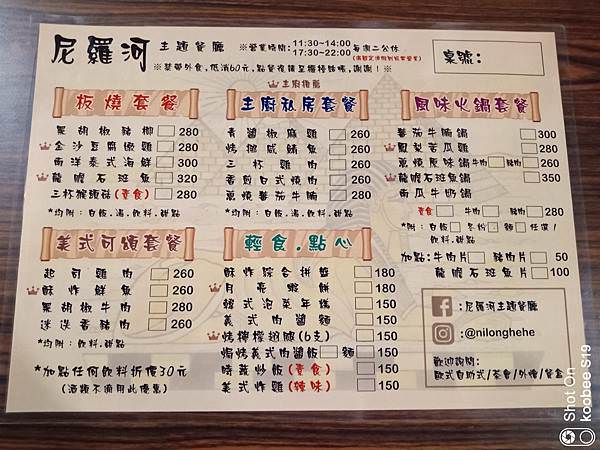 尼羅河 主題餐廳
※營業時間:11:30~14:00 每週二公休
17:30~22:00
桌號:
※禁帶外食,低消60元,點餐後請至櫃檯結帳,謝謝!※
主廚推薦
板燒套餐
黑胡椒豬柳 280
金沙豆腐嫩雞 280
南洋泰式海鮮 300
龍膽石斑魚 320
三杯猴頭菇(素食) 280
*均附:白飯.湯.飲料.甜點
主廚私房套餐
青醬椒麻雞 260
烤挪威鯖魚 260
三杯雞肉 260
香煎日式燒肉 260
蔥燒蕃茄牛腩 280
*均附:白飯.湯.飲料.甜點
風味火鍋套餐
蕃茄牛腩鍋 300
鳳梨苦瓜雞 280
蔥燒原味鍋 牛肉 豬肉 260
龍膽石斑魚鍋 350
南瓜牛奶鍋
素食 牛肉 豬肉 280
*附:白飯 冬粉 麵 任選!
飲料.甜點
加點:牛肉片、豬肉片 50
龍膽石斑魚片 100
美式可頌套餐
起司雞肉 260
酥炸鮮魚 260
黑胡椒牛肉 280
迷迭香豬肉 260
*均附:飲料.甜點
*加點任何飲料折價30元
(酒類不適用此優惠)
輕食.點心
酥炸綜合拼盤 180
月亮蝦餅 180
韓式泡菜年糕 150
義式肉醬麵 150
烤檸檬翅腿(6支) 150
焗烤義式肉醬飯 麵 150
時蔬炒飯(素食) 150
美式炸雞(辣味) 150
:尼羅河主題餐廳
:@nilonghehe
歡迎詢問:
歐式自助式/茶會/外燴/餐盒
Shot On
koobee S19